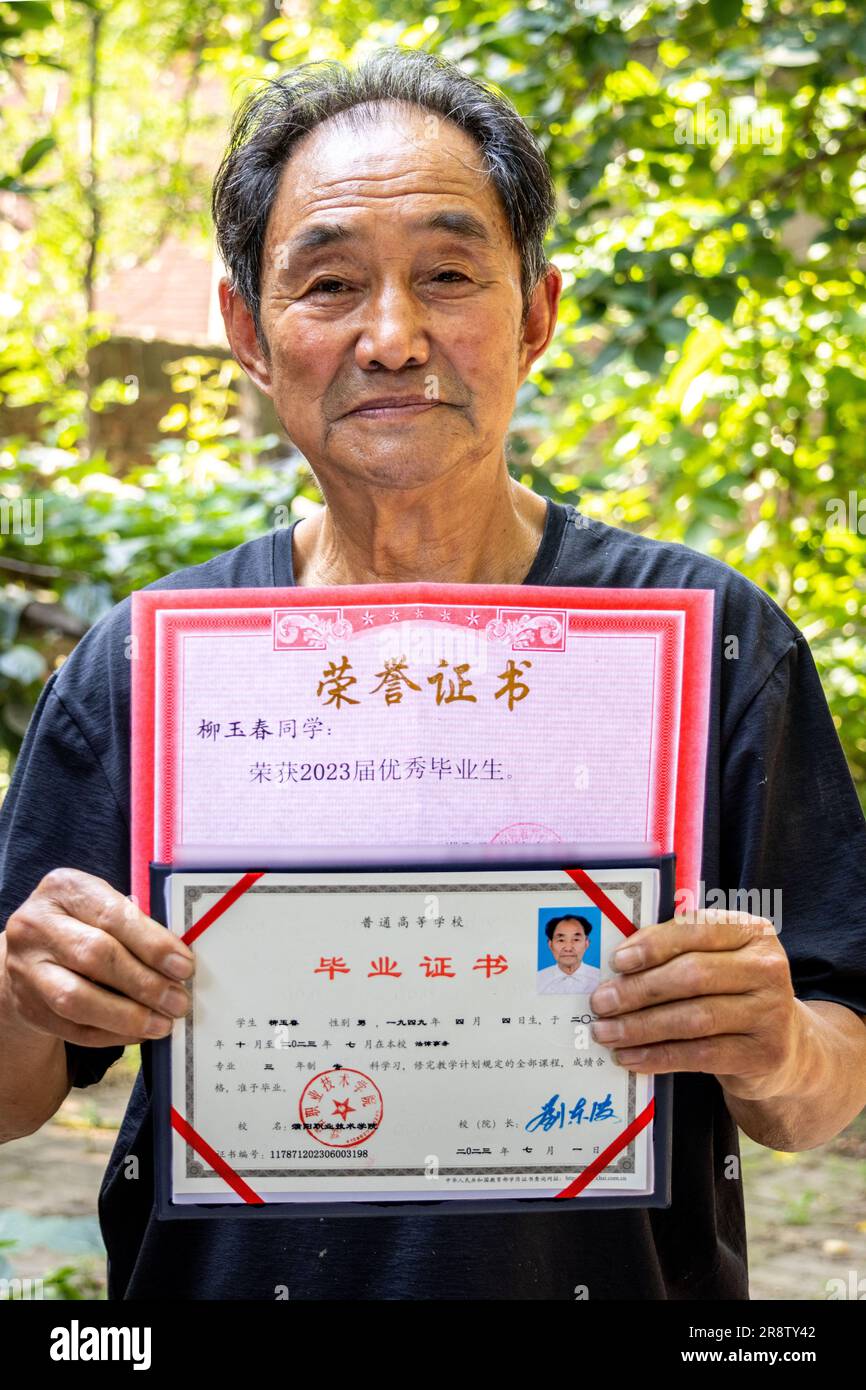 荣誉证书
柳玉春同学：
荣获2023届优秀毕业生。
普通高等学校
毕业证书
学生 柳玉春 性别 男 ，一九四九年 四 月 四 日生，于 二〇
年 十 月至 二〇二三 年 七 月在本校 法律事务
专业 三 年制 专 科学习，修完教学计划规定的全部课程，成绩合
格，准予毕业。
校 名： 濮阳职业技术学院 校（院）长：
证书编号： 117871202306003198 二〇二三 年 七 月 一 日
中华人民共和国教育部学历证书查询网址：
alamy
Image ID: 2R8TY42
www.alamy.com